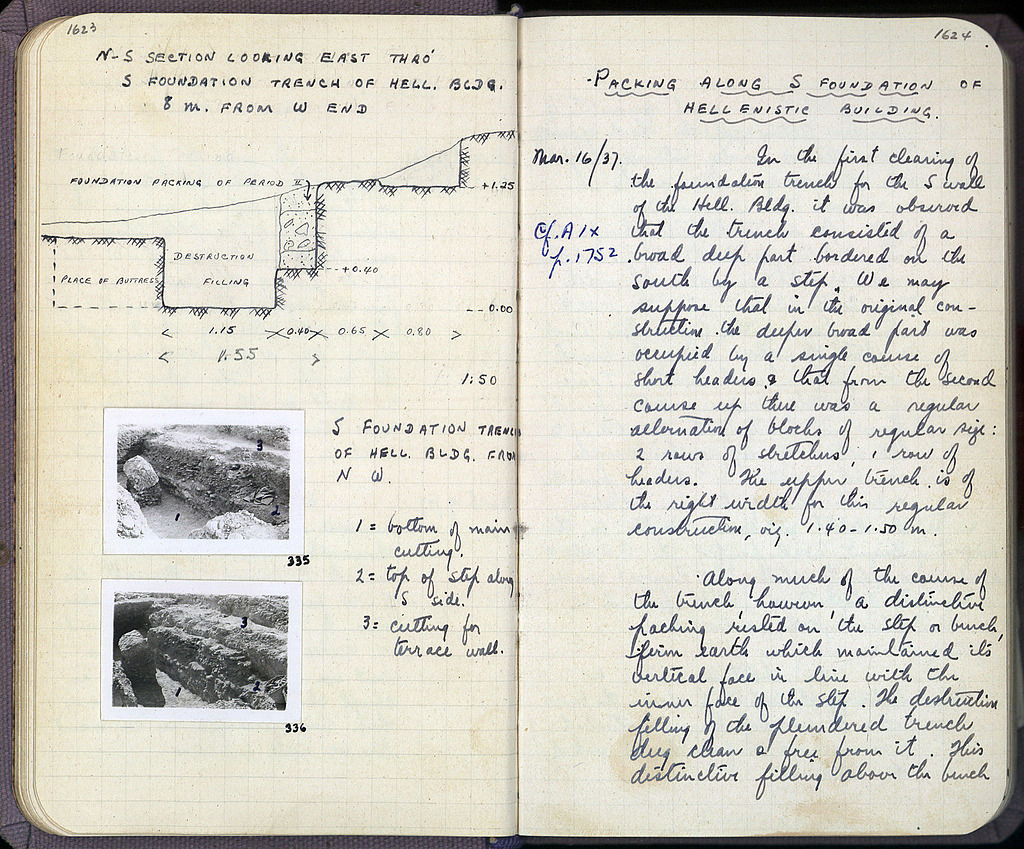 1623
N-S SECTION LOOKING EAST THRO'
S FOUNDATION TRENCH OF HELL. BLDG.
8 M. FROM W END
FOUNDATION PACKING OF PERIOD II
+1.25
DESTRUCTION
FILLING
PLACE OF BUTTRESS
+0.40
0.00
1.15 0.40 0.65 0.80
1.55
1:50
S FOUNDATION TRENCH
OF HELL. BLDG. FROM
N W.
3
1
2
335
1 = bottom of main
cutting.
2 = top of step along
S side.
3 = cutting for
terrace wall.
3
1
2
336
1624
PACKING ALONG S FOUNDATION OF
HELLENISTIC BUILDING.
Mar. 16/37.
In the first clearing of
the foundation trench for the S wall
of the Hell. Bldg. it was observed
Cf. A IX
p. 1752
that the trench consisted of a
broad deep part bordered on the
south by a step. We may
suppose that in the original con-
struction the deeper broad part was
occupied by a single course of
short headers & that from the second
course up there was a regular
alternation of blocks of regular size:
2 rows of stretchers, 1 row of
headers. The upper trench is of
the right width for this regular
construction, viz. 1.40-1.50 m.
Along much of the course of
the trench, however, a distinctive
packing rested on the step or bench,
firm earth which maintained its
vertical face in line with the
inner face of the step. The destruction
filling of the plundered trench
dug clean & free from it. This
distinctive filling above the bench